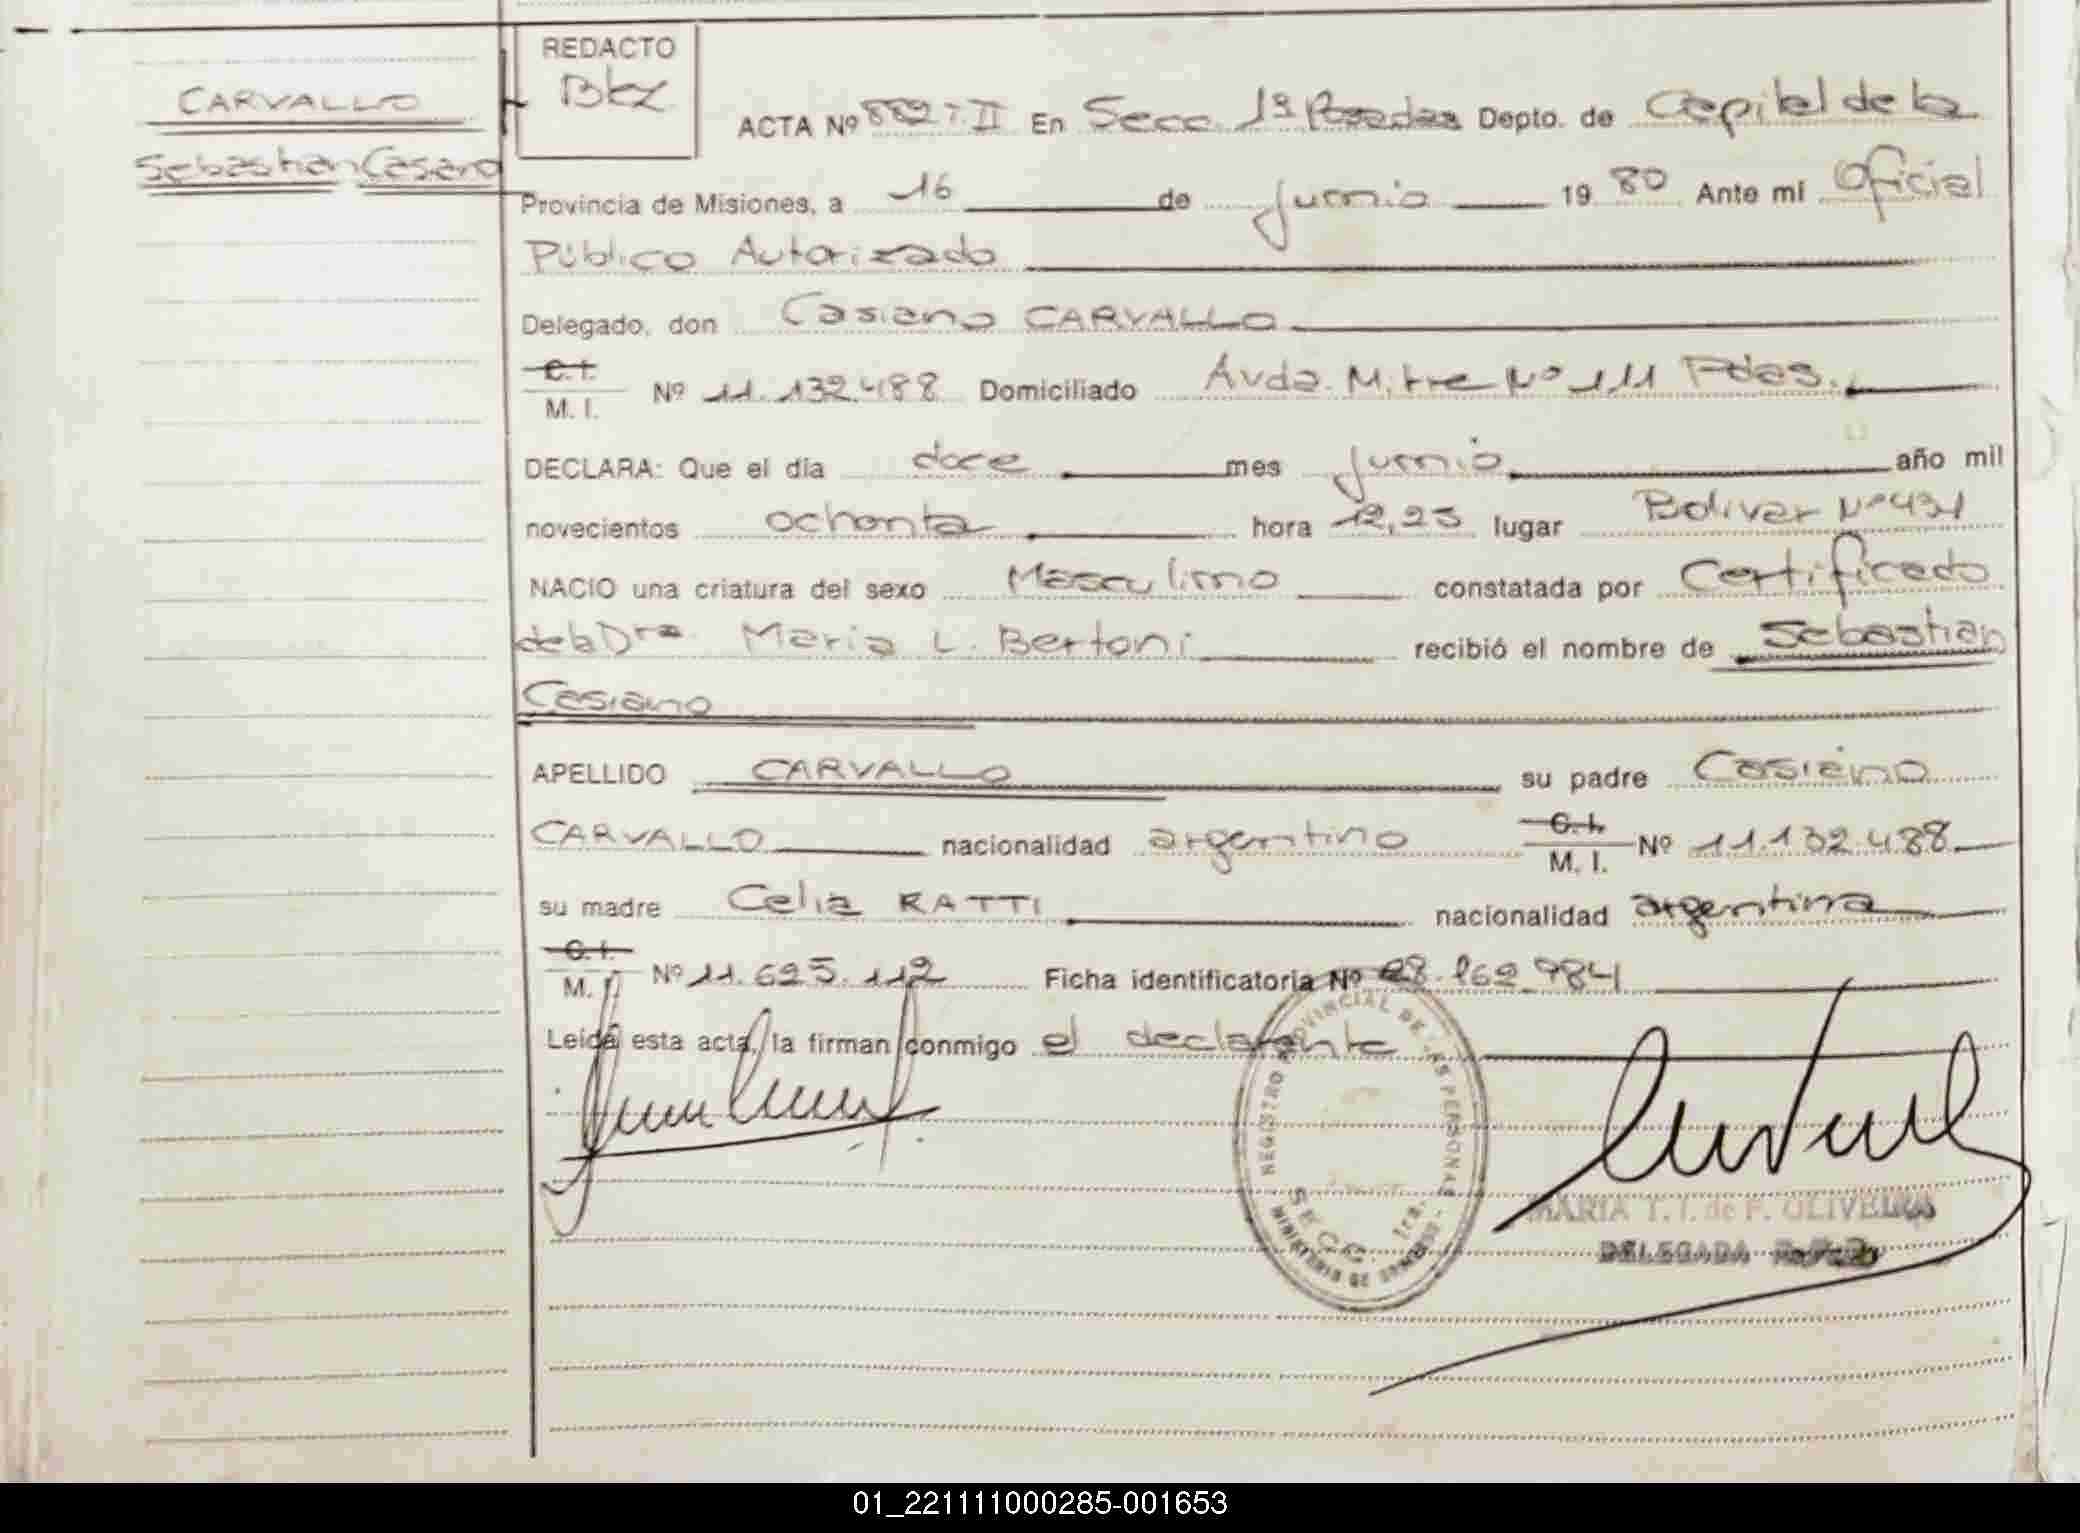 CARVALLO
Sebastian Casiano
REDACTO
ACTA Nº 882 T. II En Secc. 1ª Posadas Depto. de Capital de la
Provincia de Misiones, a 16 de Junio 19 80 Ante mi Oficial
Público Autorizado
Delegado, don Casiano CARVALLO
C. I.
M. I. Nº 11.132.488 Domiciliado Avda. Mitre Nº 111 Pdas.
DECLARA: Que el día doce mes Junio año mil
novecientos ochenta hora 12,25 lugar Bolivar Nº 431
NACIO una criatura del sexo Masculino constatada por Certificado
de la Dra. Maria L. Bertoni recibió el nombre de Sebastian
Casiano
APELLIDO CARVALLO su padre Casiano
CARVALLO nacionalidad argentino C. I. M. I. Nº 11.132.488
su madre Celia RATTI nacionalidad argentina
C. I.
M. I. Nº 11.625.112 Ficha identificatoria Nº 28.162.984
Leida esta acta, la firman conmigo el declarante
REGISTRO PROVINCIAL DE LAS PERSONAS
SECC. 1ra.
MINISTERIO DE
MARIA T. I. de F. OLIVEIRA
DELEGADA
01_221111000285-001653